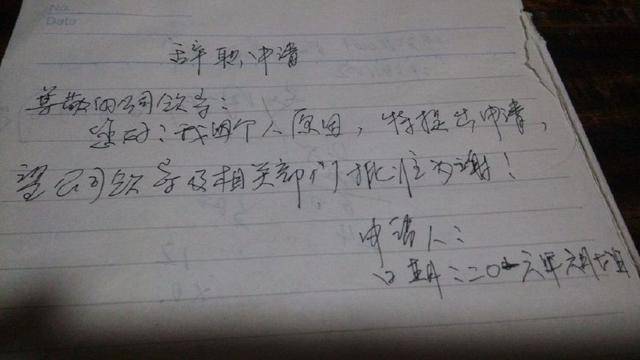 No.
Date
辞职申请
尊敬的公司领导：
您好：我因个人原因，特提出申请，
望公司领导及相关部门批准为谢！
申请人：
日期：二0一六年六月